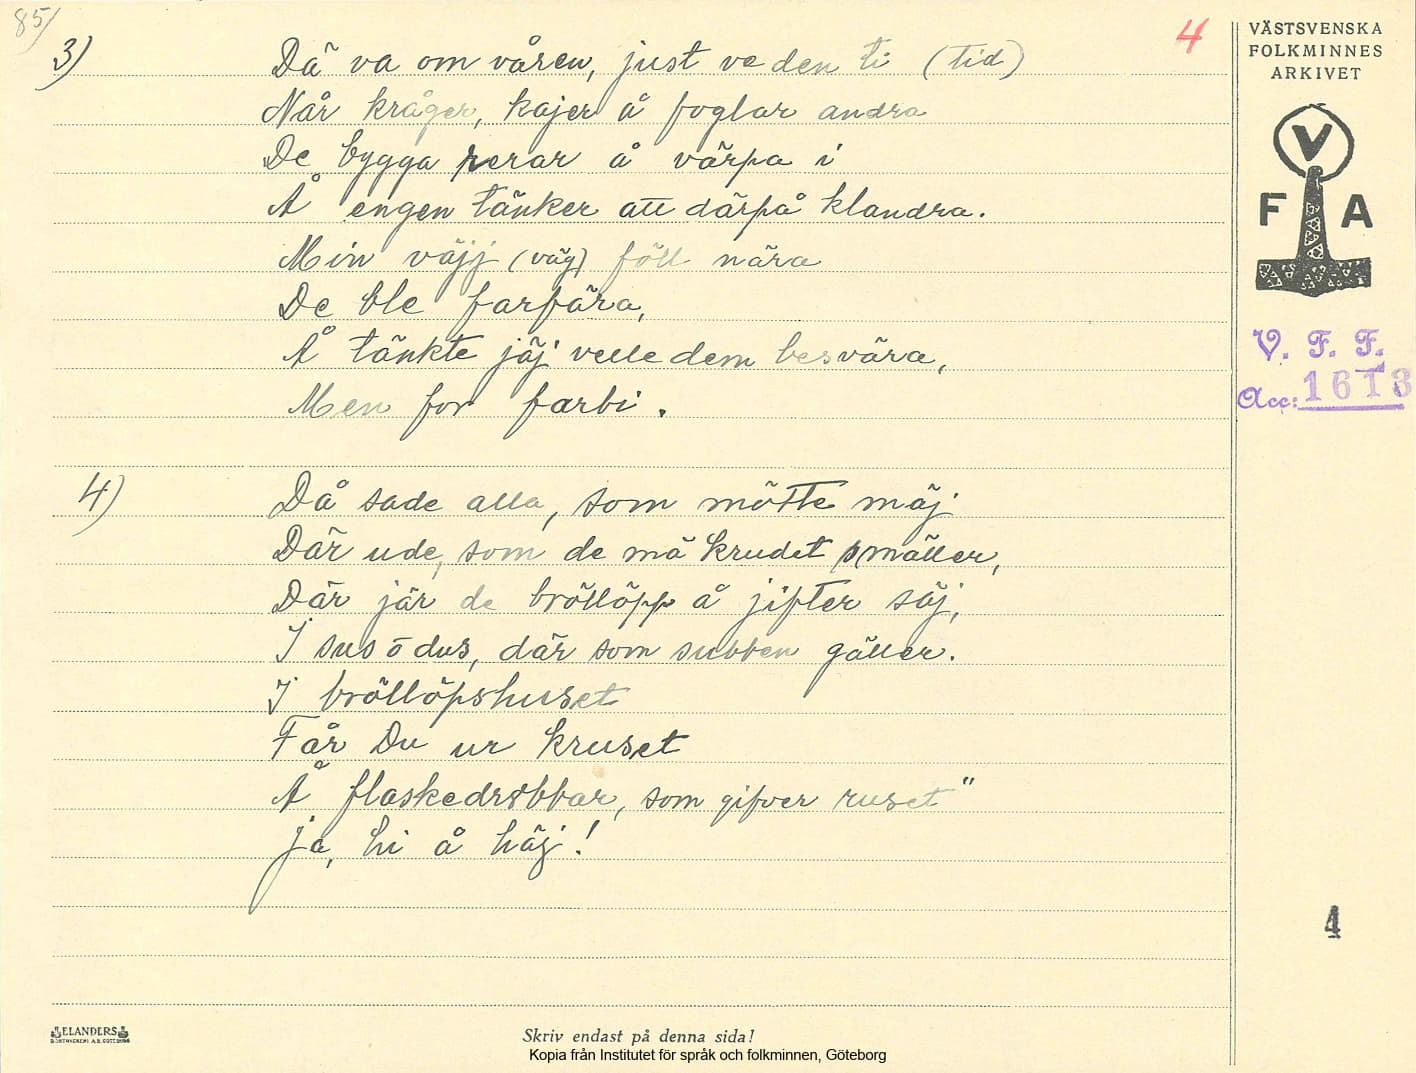 85/
4
VÄSTSVENSKA
FOLKMINNES
ARKIVET
V
F A
V. F. F.
Acc: 1613
3)
Dä va om våren, just ve den ti (tid)
Når kråger, kajer å foglar andra
De bygga rerar å värpa i
Å engen tänker att därpå klandra.
Min väjj (väg) föll nära
De ble farfära,
Å tänkte jäj velle dem besvära,
Men for farbi.
4)
Då sade alla, som mötte mäj
Där ude, som de mä krudet smäller,
Där jär de bröllöpp å jifter säj,
I sus ö dus, där som subben gäller.
I bröllöpshuset
Får Du ur kruset
Å flaskedröbbar, som gifver ruset"
Ja, hi å häj!
4
ELANDERS
BOKTRYCKERI A.B. GÖTEBORG
Skriv endast på denna sida!
Kopia från Institutet för språk och folkminnen, Göteborg